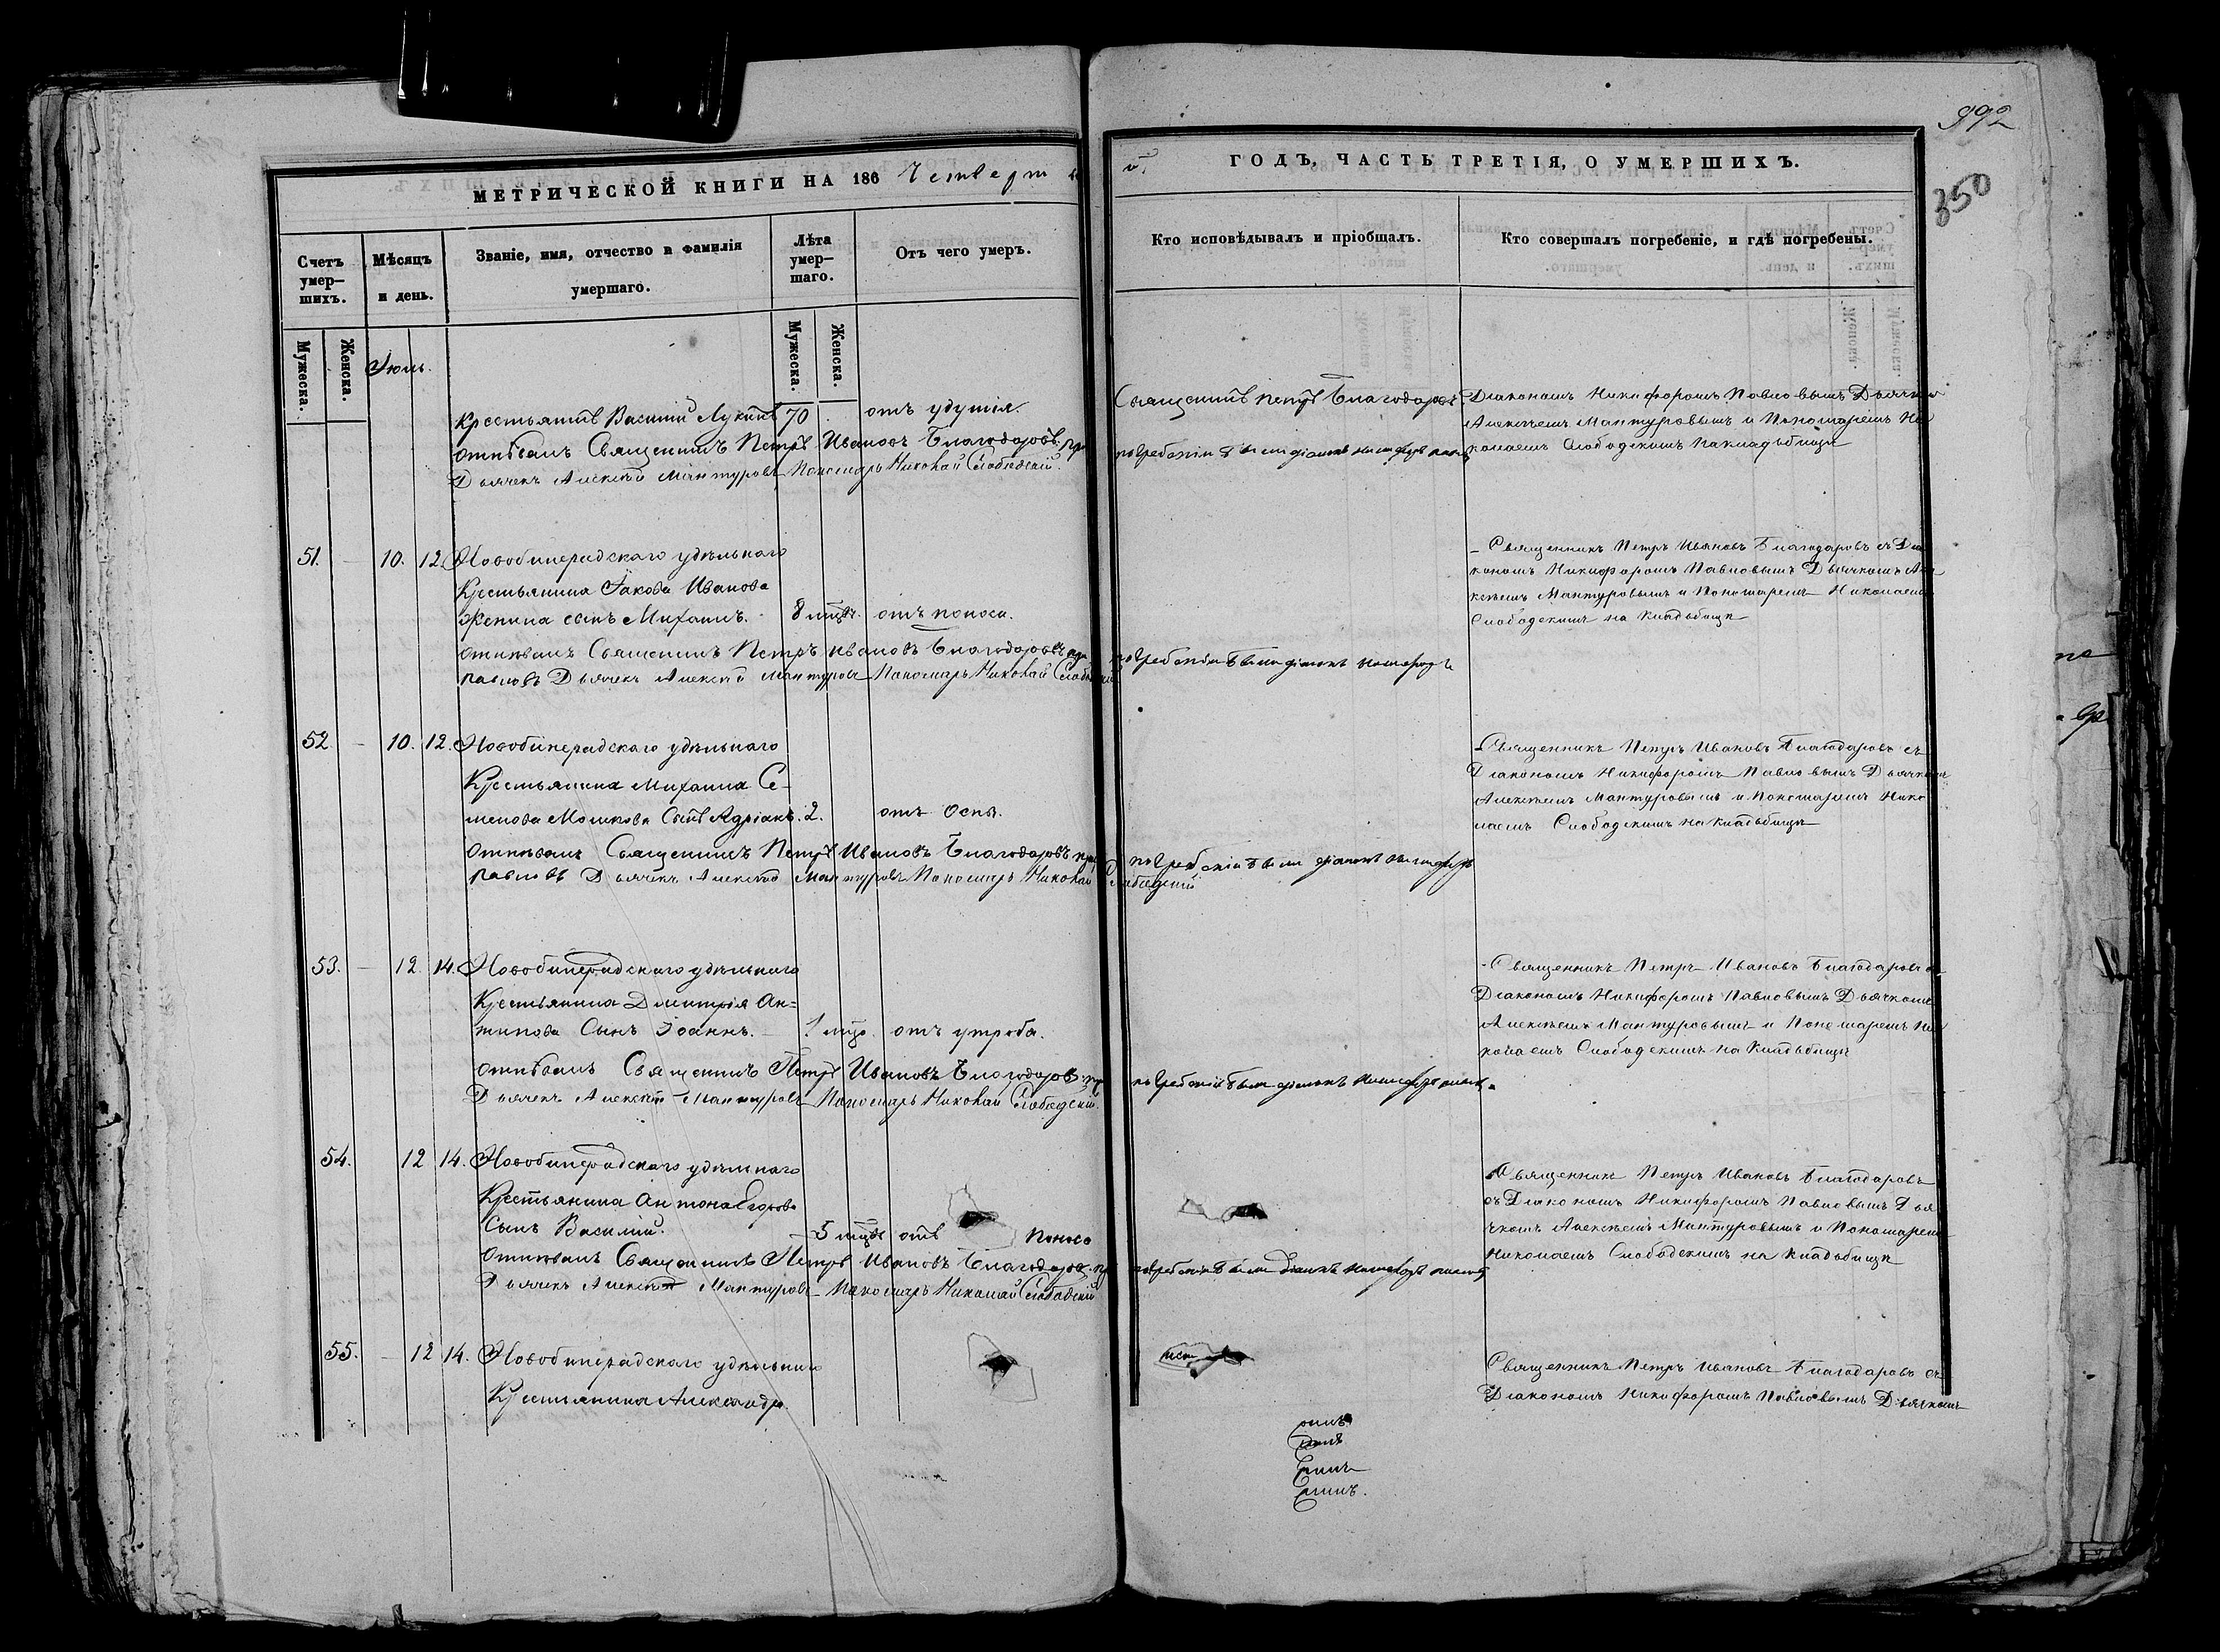 992
350
МЕТРИЧЕСКОЙ КНИГИ НА 186 Четверт
й ГОДЪ, ЧАСТЬ ТРЕТІЯ, О УМЕРШИХЪ.
Счетъ умер-шихъ.
Мѣсяцъ и день.
Званіе, имя, отчество и фамилія умершаго.
Лѣта умер-шаго.
Отъ чего умеръ.
Кто исповѣдывалъ и пріобщалъ.
Кто совершалъ погребеніе, и гдѣ погребены.
Мужеска.
Женска.
Іюль.
Мужеска.
Женска.
Крестьянинъ Василій Лукинъ 70 отъ удушія.
отпѣвалъ Священникъ Петръ Ивановъ Благодаровъ при
Дьячекъ Алексѣй Мантуровъ Пономарь Николай Слободскій.
Священникъ Петръ Благодаровъ
погребеніи были діаконъ
Діакономъ Никифоромъ Павловымъ Дьячкомъ
Алексѣемъ Мантуровымъ и Пономаремъ Ни
колаемъ Слободскимъ на кладьбищи
51. – 10. 12. Новобинарадскаго удѣльнаго
Крестьянина Іакова Иванова
женина сынъ Михаилъ. 8 мцвъ. отъ поноса.
отпѣвалъ Священникъ Петръ Ивановъ Благодаровъ при
Павловъ Дьячекъ Алексѣй Мантуровъ Пономарь Николай Слободскій
погребеніи были діаконъ Никифоръ
– Священникъ Петръ Ивановъ Благодаровъ съ Діа
кономъ Никифоромъ Павловымъ Дьячкомъ Але
ксѣемъ Мантуровымъ и Пономаремъ Николаемъ
Слободскимъ на кладьбищи
52 – 10. 12. Новобинарадскаго удѣльнаго
Крестьянина Михаила Се-
менова Сынъ Адріанъ. 2. отъ Оспы.
отпѣвалъ Священникъ Петръ Ивановъ Благодаровъ при
Павловъ Дьячекъ Алексѣй Мантуровъ Пономарь Николай Слободскій
погребеніи были діаконъ Никифоръ
Священникъ Петръ Ивановъ Благодаровъ съ
Діакономъ Никифоромъ Павловымъ Дьячкомъ
Алексѣемъ Мантуровымъ и Пономаремъ Нико
лаемъ Слободскимъ на кладьбищи
53. – 12. 14. Новобинарадскаго удѣльнаго
Крестьянина Димитрія Ан=
типова Сынъ Іоаннъ. – 1 мцъ. отъ утроба.
отпѣвалъ Священникъ Петръ Ивановъ Благодаровъ при
Дьячекъ Алексѣй Мантуровъ Пономарь Николай Слободскій.
погребеніи были діаконъ Никифоръ
- Священникъ Петръ Ивановъ Благодаровъ съ
Діакономъ Никифоромъ Павловымъ Дьячкомъ
Алексѣемъ Мантуровымъ и Пономаремъ Ни
колаемъ Слободскимъ на кладьбищи
54. 12 14. Новобинарадскаго удѣльнаго
Крестьянина Антона Егорова
Сынъ Василій. 5 мцвъ отъ поноса
отпѣвалъ Священникъ Петръ Ивановъ Благодаровъ при
Дьячекъ Алексѣй Мантуровъ Пономарь Николай Слободскій
погребеніи были діаконъ Никифоръ
Священникъ Петръ Ивановъ Благодаровъ
съ Діакономъ Никифоромъ Павловымъ Дья
чкомъ Алексѣемъ Мантуровымъ и Пономаремъ
Николаемъ Слободскимъ на кладьбищи
55. – 12 14. Новобинарадскаго удѣльнаго
Крестьянина Александр
Священникъ Петръ Ивановъ Благодаровъ съ
Діакономъ Никифоромъ Павловымъ Дьячкомъ